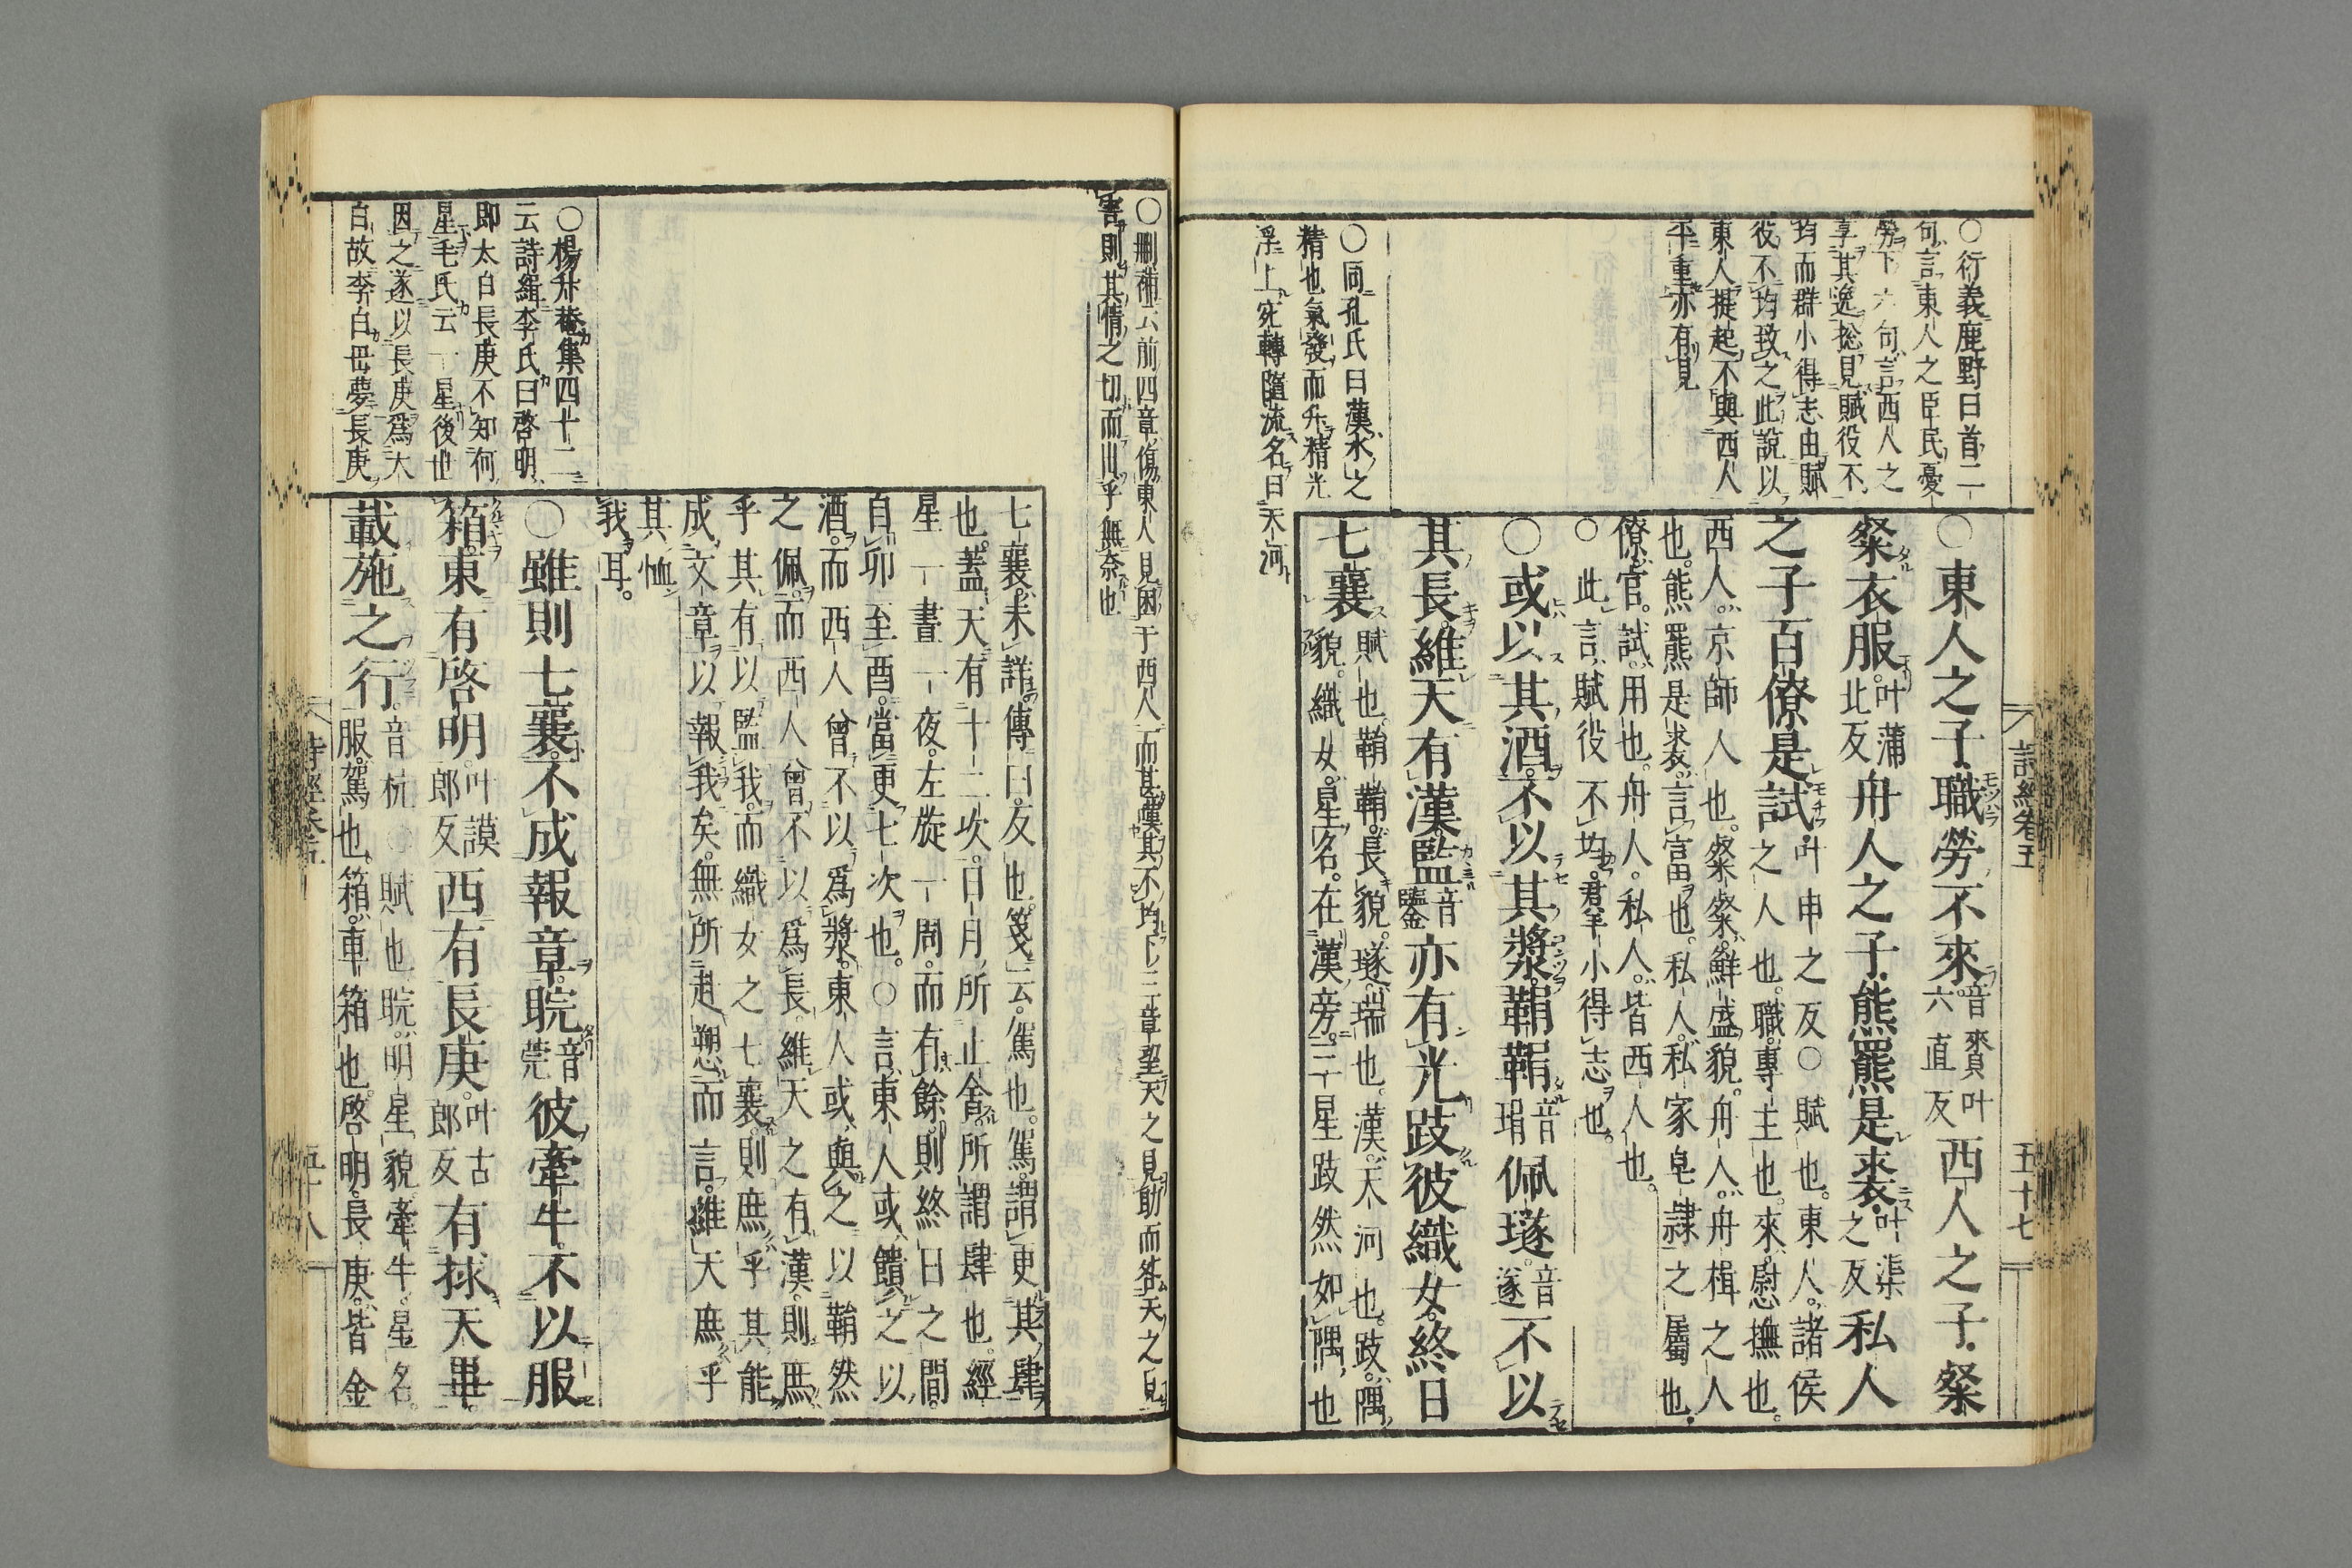 ○衍義鹿野曰首二
句言東人之臣民憂
勞下六句言西人之
享其逸揔見賦役不
均而群小得志由賦
役不均致之此說以
東人提起不與西人
平重亦有見
○同孔氏曰漢水之
精也氣發而升精光
浮上宛轉隨流名曰天河
詩經卷五
五十七
○東人之子職勞不來音賚叶六直反西人之子粲
粲衣服叶蒲北反舟人之子熊羆是裘叶渠之反私人
之子百僚是試叶申之反○賦也東人諸侯
之人也職專主也來慰撫也
西人京師人也粲粲鮮盛貌舟人舟楫之人
也熊羆是裘言富也私人私家皂隸之屬也
僚官試用也舟人私人皆西人也
○此言賦役不均群小得志也
○或以其酒不以其漿鞙鞙音琄佩璲音遂不以
其長維天有漢監音鑒亦有光跂彼織女終日
七襄賦也鞙鞙長貌璲瑞也漢天河也跂隅
貌織女星名在漢旁三星跂然如隅也
○刪補云前四章傷東人見困于西人而甚嘆其不均下三章望天之見助而咎天之見
害則其情之切而出乎無奈也
七襄未詳傳曰反也箋云駕也駕謂更其肆
也蓋天有十二次日月所止舍所謂肆也經
星一晝一夜左旋一周而有餘則終日之間
自卯至酉當更七次也○言東人或饋之以
酒而西人曾不以為漿東人或與之以鞙然
之佩而西人曾不以為長維天之有漢則庶
乎其有以監我而織女之七襄則庶乎其能
成文章以報我矣無所赴愬而言維天庶乎
其恤
我耳
○雖則七襄不成報章睆音莞彼牽牛不以服
箱東有啓明叶謨郎反西有長庚叶古郎反有捄天畢
載施之行音杭○賦也睆明星貌牽牛星名
服駕也箱車箱也啓明長庚皆金
○楊升菴集四十二
云詩緝李氏曰啓明
即太白長庚不知何
星毛氏云一星後也
因之遂以長庚為太
白故李白母夢長庚